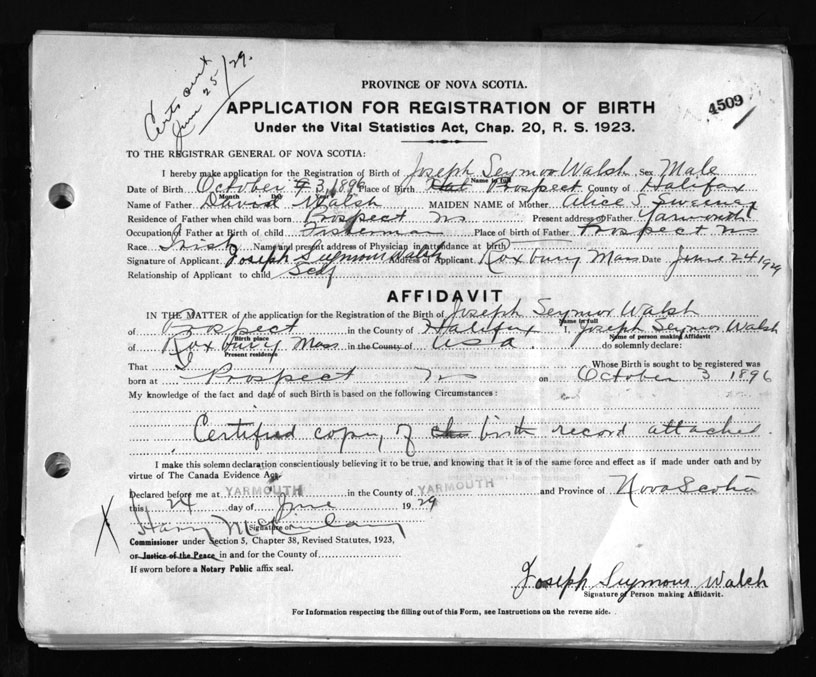 Certs sent
June 25/29.
PROVINCE OF NOVA SCOTIA.
4509
APPLICATION FOR REGISTRATION OF BIRTH
Under the Vital Statistics Act, Chap. 20, R. S. 1923.
TO THE REGISTRAR GENERAL OF NOVA SCOTIA:
I hereby make application for the Registration of Birth of Joseph Seymor Walsh Sex Male
Name in full
Date of Birth October 3, 1896 Place of Birth Prospect County of Halifax
Month Day
Name of Father David Walsh MAIDEN NAME of Mother Alice S. Sweeney
Residence of Father when child was born Prospect Ns Present address of Father Yarmouth
Occupation of Father at Birth of child Fisherman Place of birth of Father Prospect Ns
Race Irish Name and present address of Physician in attendance at birth
Signature of Applicant Joseph Seymour Walsh Address of Applicant Roxbury Mass Date June 24 1929
Relationship of Applicant to child Self
AFFIDAVIT
IN THE MATTER of the application for the Registration of the Birth of Joseph Seymor Walsh
Name in full
of Prospect in the County of Halifax I, Joseph Seymor Walsh
Birth place Name of person making Affidavit
of Roxbury Mass. in the County of USA. do solemnly declare:
Present residence
That I Whose Birth is sought to be registered was
born at Prospect Ns on October 3 1896
My knowledge of the fact and date of such Birth is based on the following Circumstances:
Certified copy, of birth record attached.
I make this solemn declaration conscientiously believing it to be true, and knowing that it is of the same force and effect as if made under oath and by
virtue of The Canada Evidence Act.
Declared before me at YARMOUTH in the County of YARMOUTH and Province of Nova Scotia
this 24 day of June 1929
X Harry McKinlay
Signature of
Commissioner under Section 5, Chapter 38, Revised Statutes, 1923,
or Justice of the Peace in and for the County of
If sworn before a Notary Public affix seal.
Joseph Seymour Walsh
Signature of Person making Affidavit.
For Information respecting the filling out of this Form, see Instructions on the reverse side.